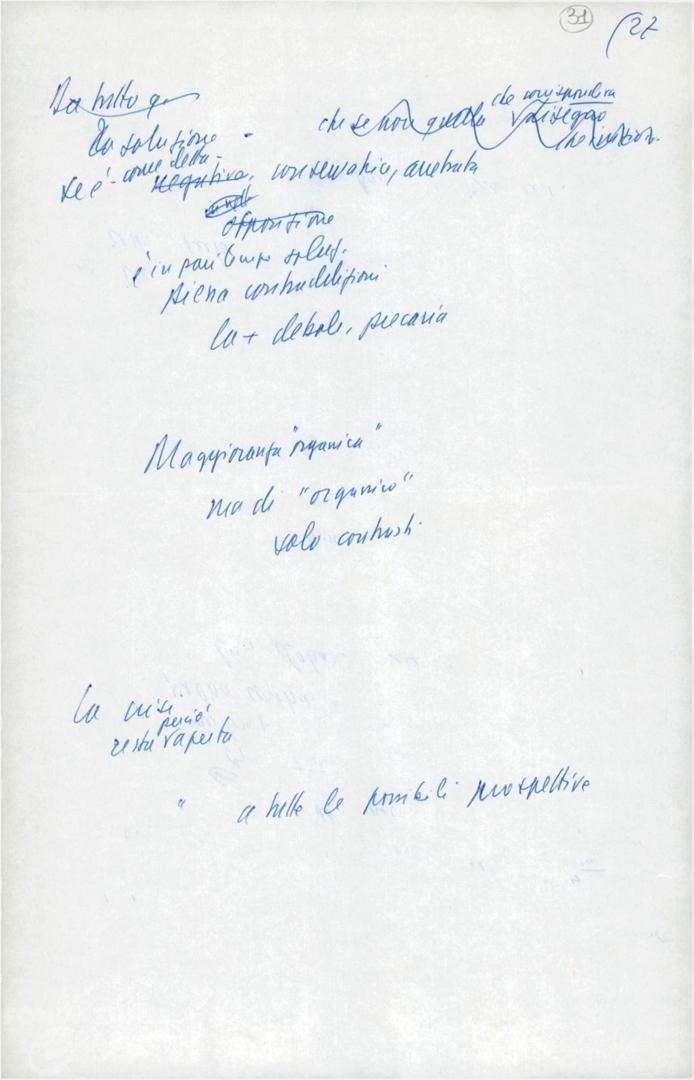 31
(27
Da tutto q
che corrisponda
La soluzione - che se non quella
se è - come detto -
negativa, conservatrice, arretrata
opposizione
è in pari tempo soluz.
piena contraddizioni
la + debole, precaria
Maggioranza "organica"
ma di "organico"
solo contrasti
La crisi
perciò
resta aperta
" a tutte le possibili prospettive